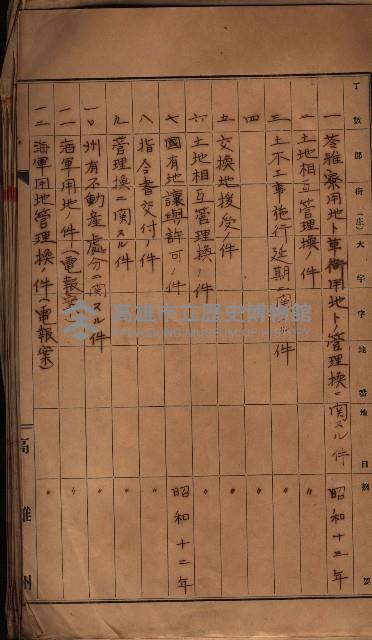 丁数 郡 街(庄) 大字 字 地番 地目 摘要
一 苓雅寮用地ト軍衙用地トノ管理換ニ関スル件 昭和十三年
二 土地相互管理換ノ件 〃
三 土木工事施行延期ニ関スル件 〃
四 〃
五 交換地後受ノ件 〃
六 土地相互管理換ノ件 〃
七 國有地讓與許可ノ件 昭和十二年
八 指令書交付ノ件 〃
九 管理換ニ関スル件 〃
一〇 州有不動産処分ニ関スル件 〃
一一 海軍用地ノ件(電報案) 〃
一二 海軍用地管理換ノ件(電報案) 〃
高雄州
高雄市立歷史博物館
KAOHSIUNG MUSEUM OF HISTORY